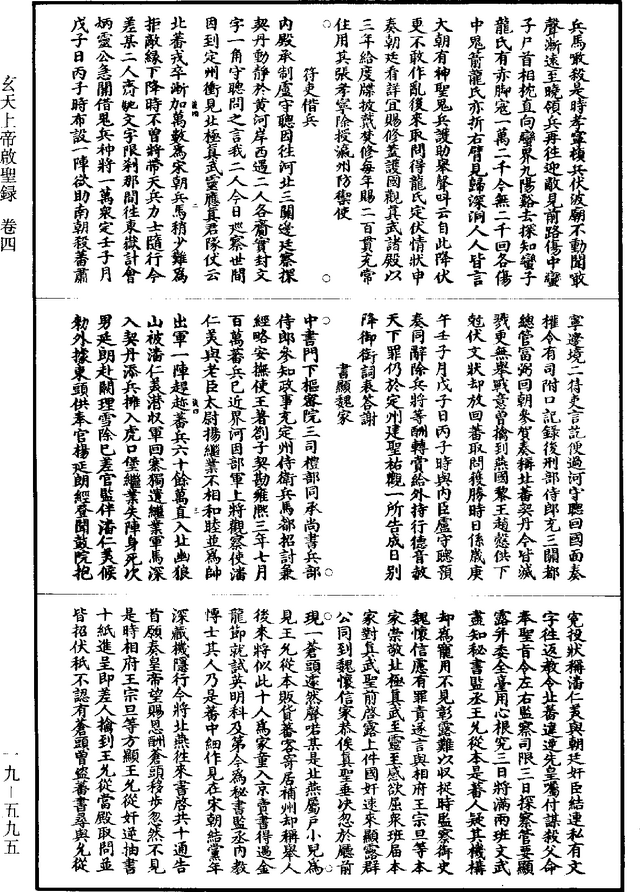 兵馬敢殺是時孝寧槓兵伏波廟不動聞敵
聲漸遠至曉領兵再往迎敵見前路傷中蠻
子尸首相挽直向蠻界九陽谿去探知蠻子
龍氏有赤腳寇一萬二千今無二千回各傷
中鬼箭龍氏亦折右臂見歸深洞人人皆言
大朝有神聖鬼兵護助舉聲呌云自此降伏
更不敢作亂後來取問得龍氏定伏情狀申
奏朝廷看詳宜賜修蓋護國觀真武諸殿以
三年給度牒披戴焚修每年賜二百貫充常
住用其張孝寧除授瀛州防禦使
符吏借兵
內殿承制盧守聰因往河北三關邊廷察探
契丹動靜於黃河岸西遇二人各齎實封文
字一角守聰問之言我二人今日巡察世間
因到定州衝見北極真武靈應真君隊仗云
北蕃戎卒漸加萬數為宋朝兵馬稍少難為
拒敵緣下降時不曾將帶天兵力士隨行今
差某二人齎虵文字限剎那間往東嶽計會
炳靈公急關借鬼兵神將一萬衆定壬子月
戊子日丙子時布設一陣欲助南朝殺蕃肅
寧邊境二符吏言訖便過河守聰回國面奏
權令有司附口記録後刑部侍郎充三關都
總管富弼回朝參賀奏稱北蕃契丹今皆減
戮更無舉戰意曾擒到燕國黎王趙供下
尅伏文狀却放回蕃取問獲勝時日係歲庚
午壬子月戊子日丙子時與內臣盧守聰預
奏同辭除兵將等酬轉賞給外特行德音放
天下罪仍於定州建聖祐觀一所告成日別
降御銜詞表答謝
書顯魏家
中書門下樞密院三司禮部同承尚書兵部
侍郎參知政事充定州侍衛兵馬都招討兼
經略安撫使王著劄子契勘雍熈三年七月
百萬蕃兵已近界河因部軍上將觀察使潘
仁美與老臣太尉揚繼業不相和睦並為帥
出軍一陣趕趂蕃兵六十餘萬直入北幽狼
山被潘仁美潛収軍回寨獨遺繼業軍馬深
入契丹添兵擁入虎口堡繼業失陣身死次
男延朗赴闕理雪除已差官監伴潘仁美候
勑外據東頭供奉官楊延朗經登聞鼓院抱
寃投狀稱潘仁美與朝廷奸臣結連私有文
字往返教令北蕃違逆先皇囑付謀殺父命
奉聖旨令左右監察司限三日探察管要顯
露并委全臺用心根究三日將滿兩班文武
盡知秘書監丞王允從本是蕃人疑其機構
却為寵用不見彰露難以収捉時監察御史
魏懷信慮有罪責遂言與相府王宗旦等本
家崇敬北極真武至靈至感欲屈衆班屆本
家對真武聖前啓露上件國奸速來顯露群
公同到魏懷信家恭俟真聖垂決忽於廳前
現一蒼頭遽然聲喏某是北燕屬戶小兒為
見王允從本販貨蕃客寄居補州却稱舉人
後來將似此十人為家童入京賣書得遇金
龍節就試英明科及第今為秘書監丞內教
博士其人乃是蕃中細作見在宋朝結黨年
深藏機隱行今將北燕往來書啓共十通告
首願奏皇帝望賜恩酬蒼頭移步忽然不見
是時相府王宗旦等方顯王允從奸逆抽書
十紙進呈即差人擒到王允從當殿取問並
皆招伏秪不認有蒼頭曾盜蕃書尋與允從
玄天上帝啟聖録 卷四
一九—五九五